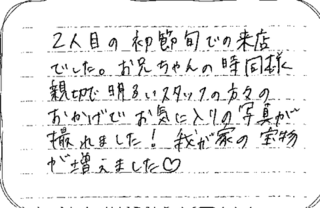 2人目の初節句での来店
でした。お兄ちゃんの時同様
親切で明るいスタッフの方々の
おかげでお気に入りの写真が
撮れました！我が家の宝物
が増えました♡